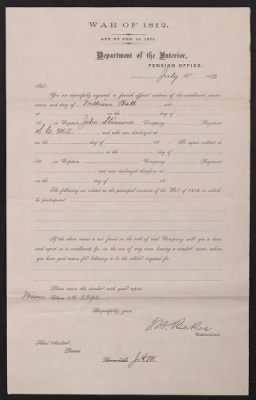 WAR OF 1812.
ACT OF FEB. 14, 1871.
Department of the Interior,
PENSION OFFICE,
July 15, 18
Sir:
You are respectfully requested to furnish official evidence of the enrollment, muster,
service, and duty of William Ball who
at on the day of
18 in Captain John Company, Regiment
S. C. Mil. and was discharged at
on the day of 18 He again enlisted at
on the day of
18 in Captain Company Regiment
and was discharged therefrom at
on the day of 18
The following are stated as the principal services of the War of 1812 in which
he participated:
If the above name is not found on the rolls of said Company, will you so state
and report as to enrollment &c., in the case of any man bearing a similar name whom
you have good reason for believing to be the soldier inquired for.
Please return this circular with your report.
Claim No.
Respectfully yours,
J. H. Baker
Commissioner.
Third Auditor,
Present.